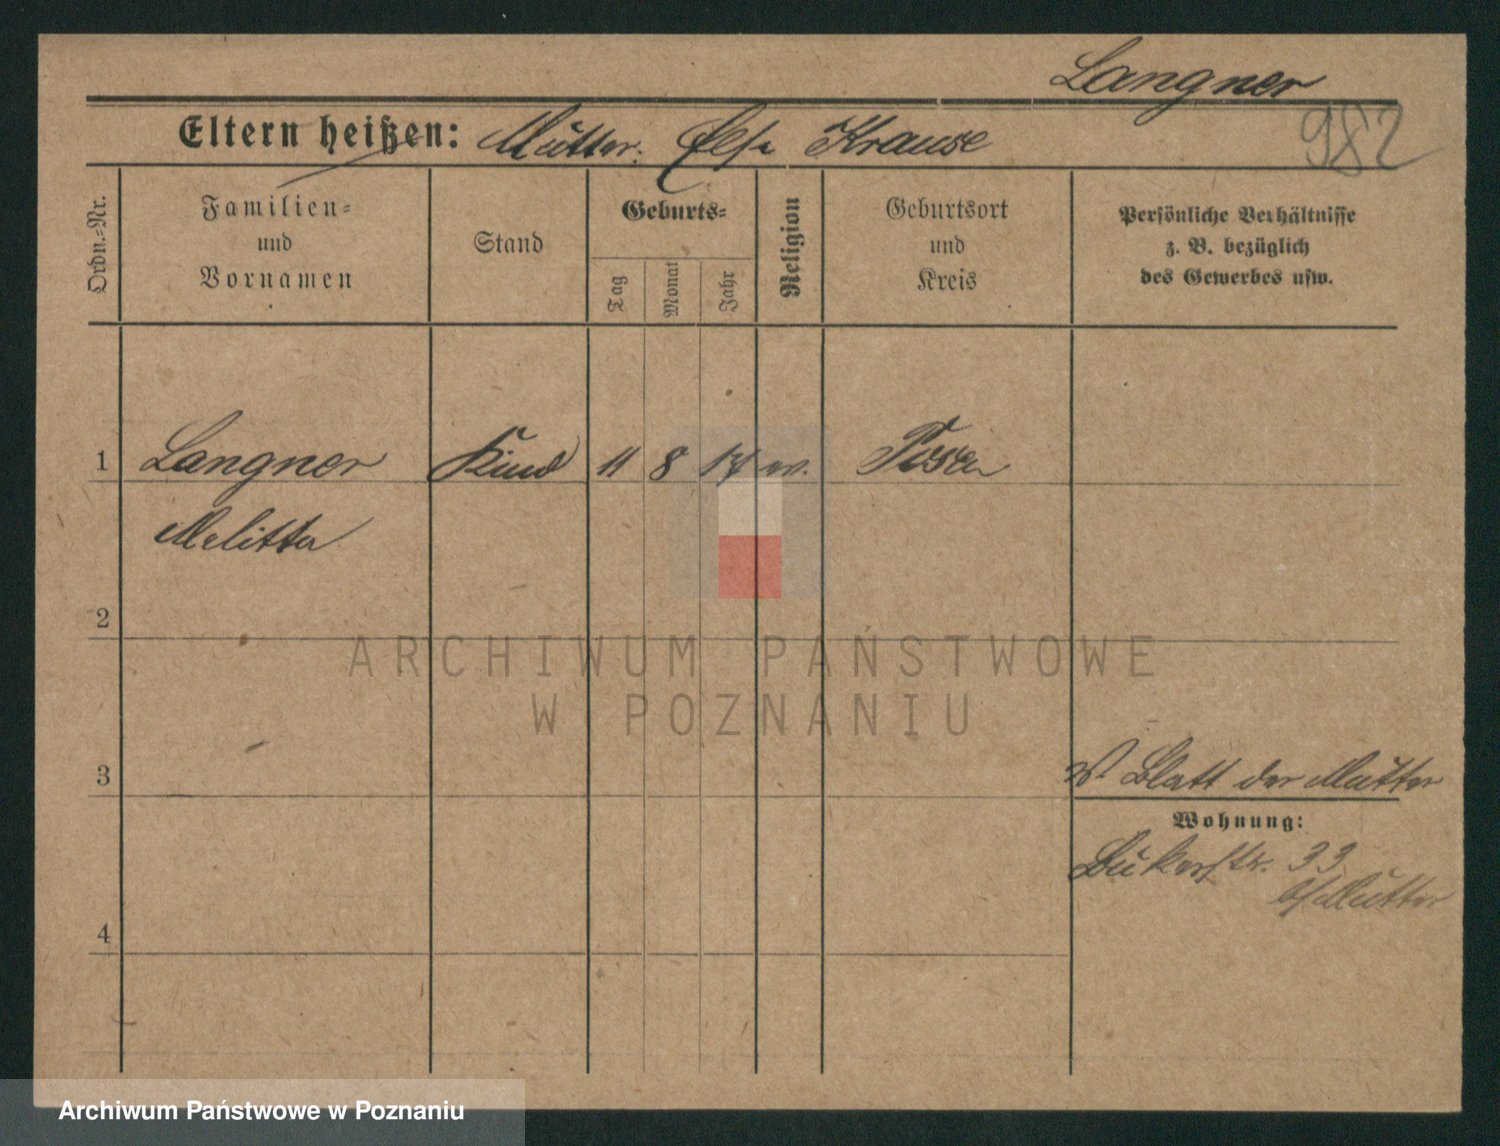 Langner
982
Eltern heißen: Mutter. Else Krause
Ordn.=Nr.
Familien=
und
Vornamen
Stand
Geburts=
Tag
Monat
Jahr
Religion
Geburtsort
und
Kreis
Persönliche Verhältnisse
z. B. bezüglich
des Gewerbes usw.
1 Langner Kind 11 8 17 ev. Posen
Melitta
2
ARCHIWUM PAŃSTWOWE
W POZNANIU
3
Blatt der Mutter
Wohnung:
Bukerstr. 33
b/Mutter
4
Archiwum Państwowe w Poznaniu